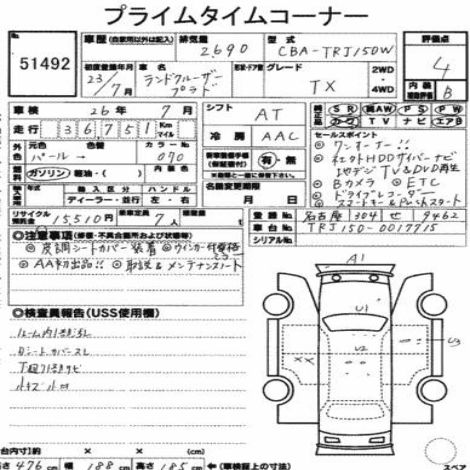 プライムタイムコーナー
51492
車歴 (自家用以外は記入) 排気量 2690 型式 CBA-TRJ150W 評価点 4
初度登録年月 23/7 ランドクルーザー プラド 形状・ドア数 グレード TX 2WD・4WD 内装 B
車検 26年 7月 シフト AT SR AW PS PW
走行 36751 Km マイル 冷房 AAC TV ナビ エアB
外色 元色 パール→ 色替 カラーNo. 070
セールスポイント
ワンオーナー!!
社外HDDサイバーナビ
地デジTV&DVD再生
Bカメラ ETC
ドライブレコーダー
スマートキー&Pushスタート
燃料 ガソリン 軽油・( ) 内装色
有・無
名義変更期限 月 日
輸入車 輸入区分 ディーラー・並行 ハンドル 左・右
リサイクル預託金 15510円 乗車定員 7人
登録No. 名古屋 304 せ 9462
車台No. TRJ150-0017715
シリアルNo.
◎注意事項 (修復・不具合箇所および状態等)
◎皮調シートカバー装着 ◎ウインカー
◎AA初出品!! ◎取説&メンテナンスノート
◎検査員報告(USS使用欄)
ルーム内
シートカバー
下廻り
A1
U1
U2
XX
U3
長さ 476 cm 幅 188 cm 高さ 185 cm ←(車検証上の寸法)